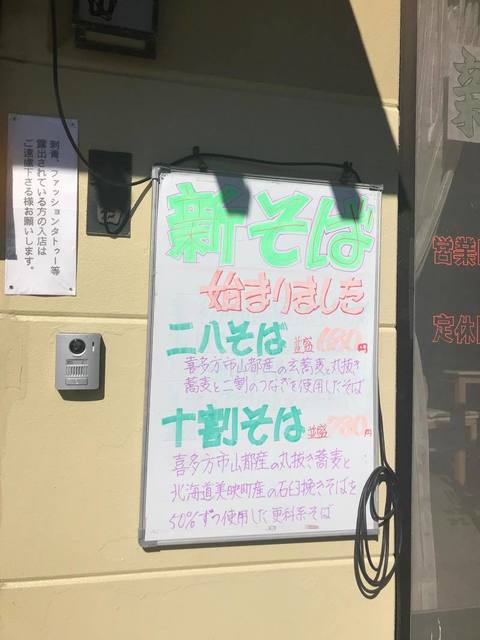 刺青、ファッションタトゥー等
露出されている方の入店は
ご遠慮下さる様お願いします。
新そば
始まりました
二八そば 並盛680円
喜多方市山都産の玄蕎麦と丸抜き
蕎麦と二割のつなぎを使用したそば
十割そば 並盛780円
喜多方市山都産の丸抜き蕎麦と
北海道美映町産の石臼挽きそばを
50%ずつ使用した更科系そば
営業
定休